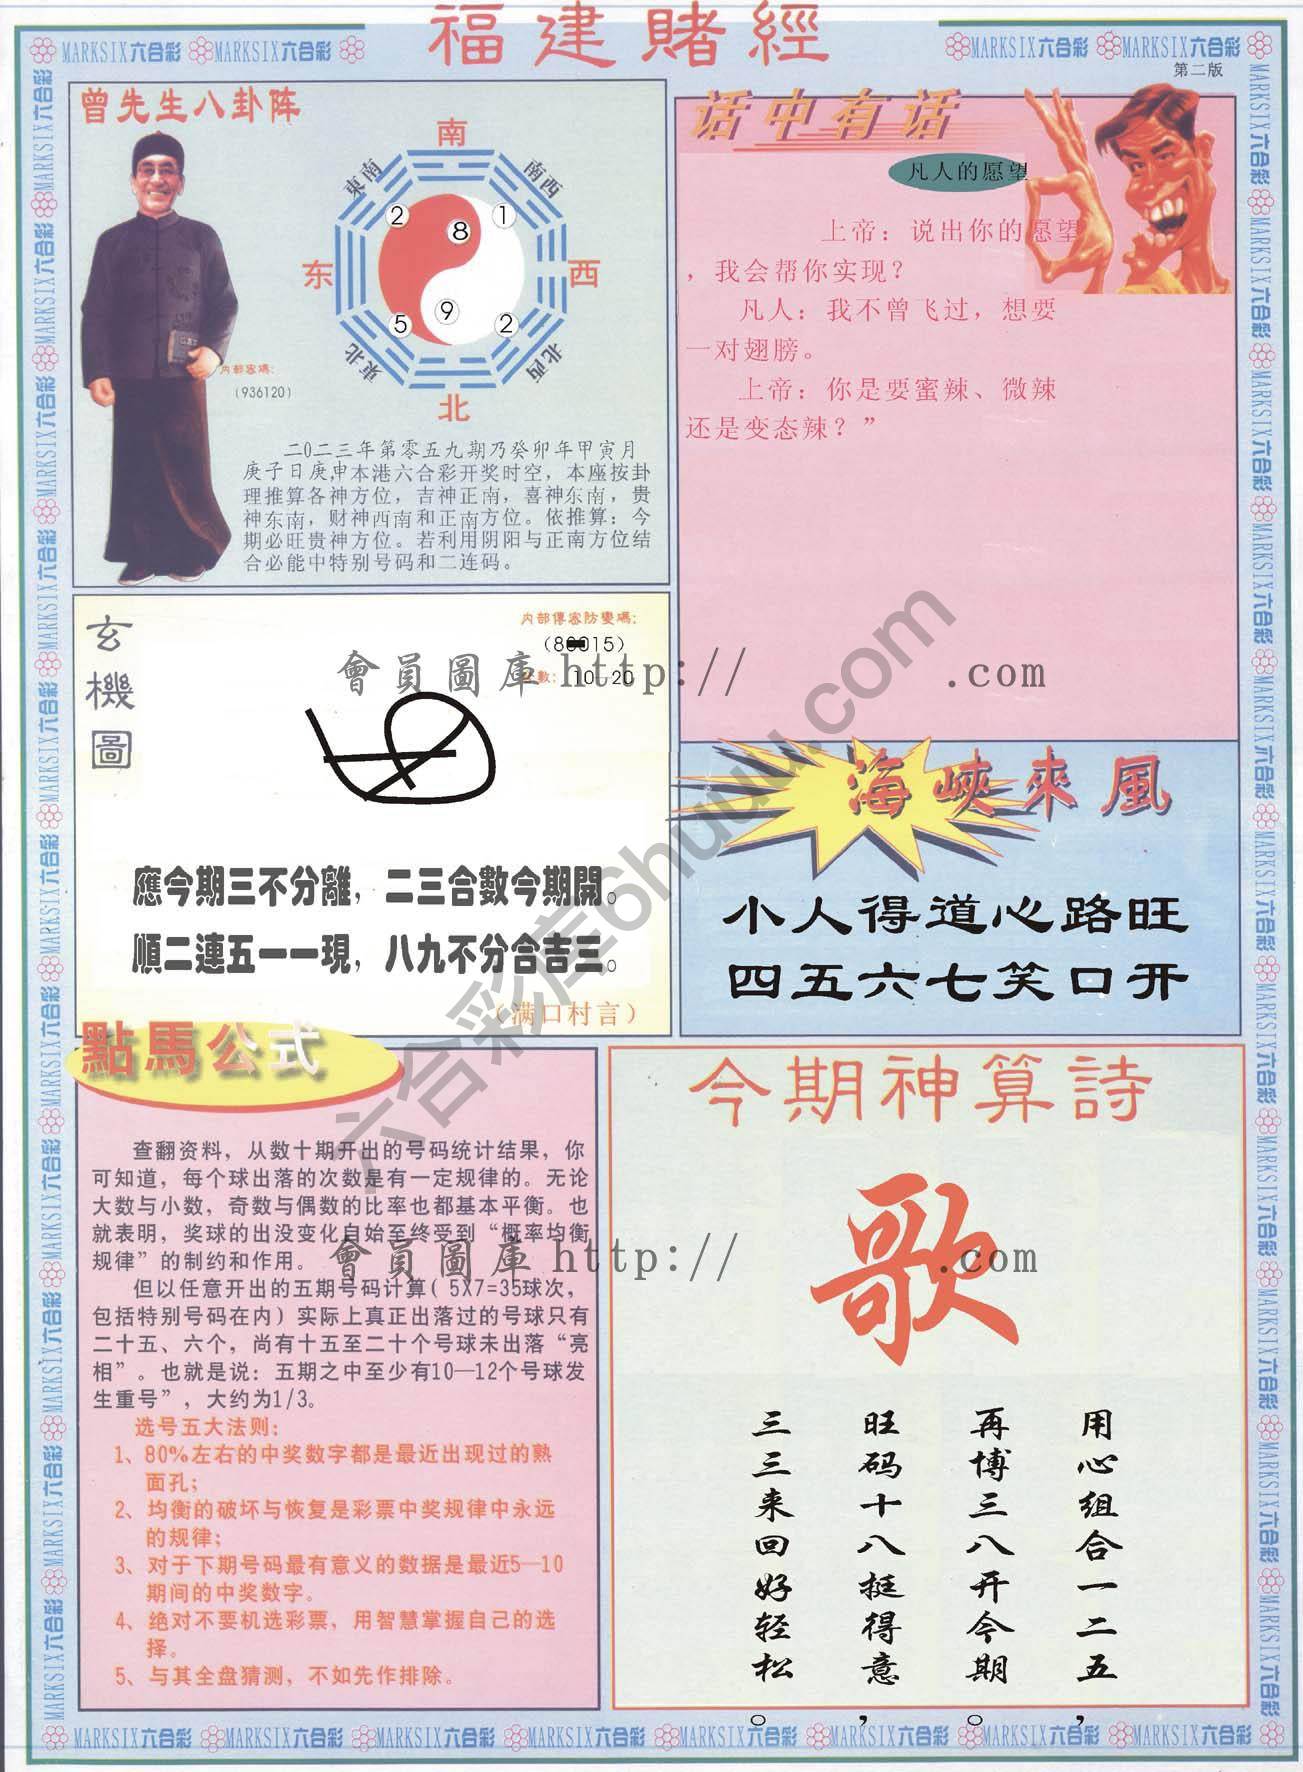 福建賭經
MARKSIX六合彩 MARKSIX六合彩
MARKSIX六合彩 MARKSIX六合彩
第二版
曾先生八卦阵
南
東南
南西
2
8
1
东
西
5
9
2
東北
北西
北
内部密碼:
(936120)
二0二三年第零五九期乃癸卯年甲寅月
庚子日庚申本港六合彩开奖时空，本座按卦
理推算各神方位，吉神正南，喜神东南，贵
神东南，财神西南和正南方位。依推算：今
期必旺贵神方位。若利用阴阳与正南方位结
合必能中特别号码和二连码。
话中有话
凡人的愿望
上帝：说出你的愿望
，我会帮你实现？
凡人：我不曾飞过，想要
一对翅膀。
上帝：你是要蜜辣、微辣
还是变态辣？”
玄機圖
内部傳密防變碼:
10-20
會員圖庫 http:// .com
應今期三不分離，二三合數今期開。
順二連五一一現，八九不分合吉三。
（满口村言）
海峽來風
小人得道心路旺
四五六七笑口开
六合彩库6huuu.com
點馬公式
查翻资料，从数十期开出的号码统计结果，你
可知道，每个球出落的次数是有一定规律的。无论
大数与小数，奇数与偶数的比率也都基本平衡。也
就表明，奖球的出没变化自始至终受到“概率均衡
规律”的制约和作用。
但以任意开出的五期号码计算( 5X7=35球次，
包括特别号码在内）实际上真正出落过的号球只有
二十五、六个，尚有十五至二十个号球未出落“亮
相”。也就是说：五期之中至少有10—12个号球发
生重号”，大约为1/3。
选号五大法则：
1、80%左右的中奖数字都是最近出现过的熟
面孔；
2、均衡的破坏与恢复是彩票中奖规律中永远
的规律；
3、对于下期号码最有意义的数据是最近5—10
期间的中奖数字。
4、绝对不要机选彩票，用智慧掌握自己的选
择。
5、与其全盘猜测，不如先作排除。
會員圖庫 http:// .com
今期神算詩
歌
用心组合一二五，
再博三八开今期。
旺码十八挺得意，
三三来回好轻松。
MARKSIX六合彩 MARKSIX六合彩 MARKSIX六合彩 MARKSIX六合彩 MARKSIX六合彩 MARKSIX六合彩 MARKSIX六合彩 MARKSIX六合彩